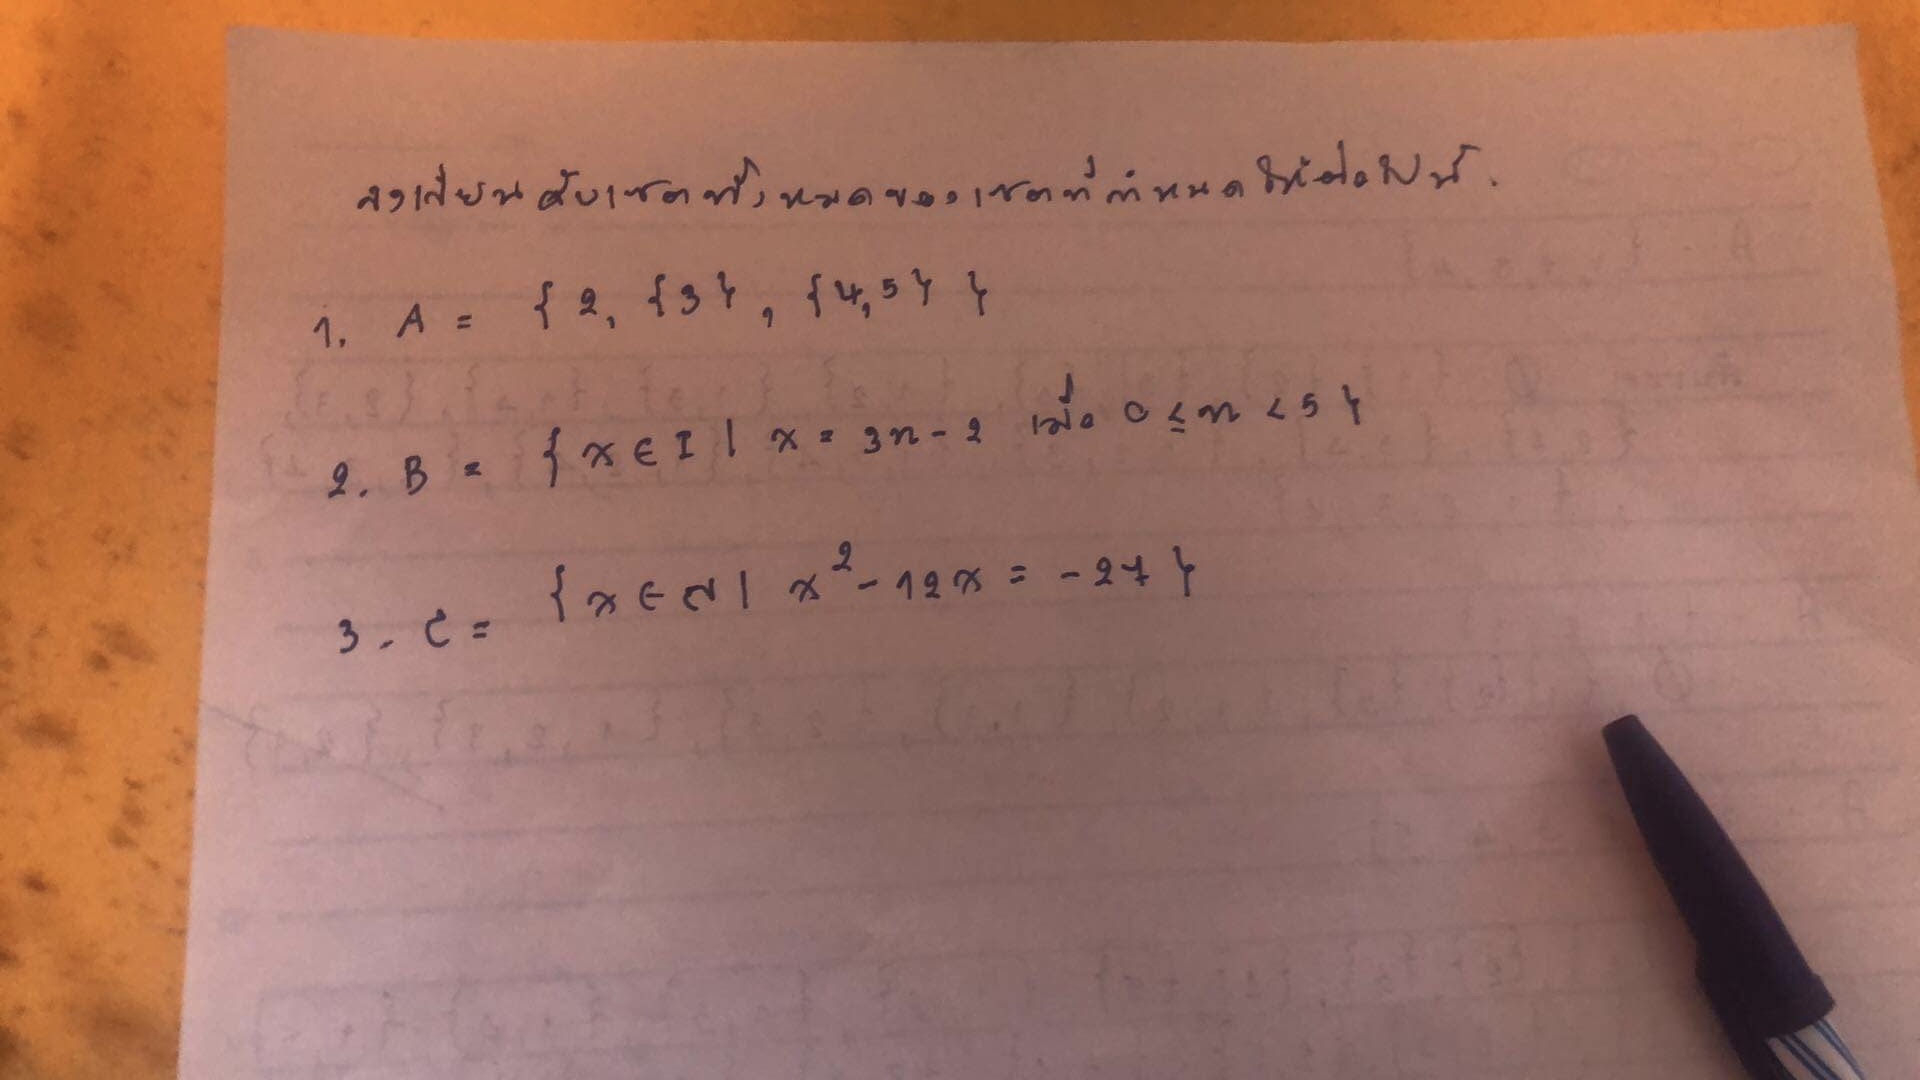 จงเขียนสับเซตทั้งหมดของเซตที่กำหนดให้ต่อไปนี้.
1. A = { 2, {3} , {4,5} }
2. B = { x ∈ I | x = 3n - 2 เมื่อ 0 ≤ n < 5 }
3. C = { x ∈ N | x² - 12x = -27 }